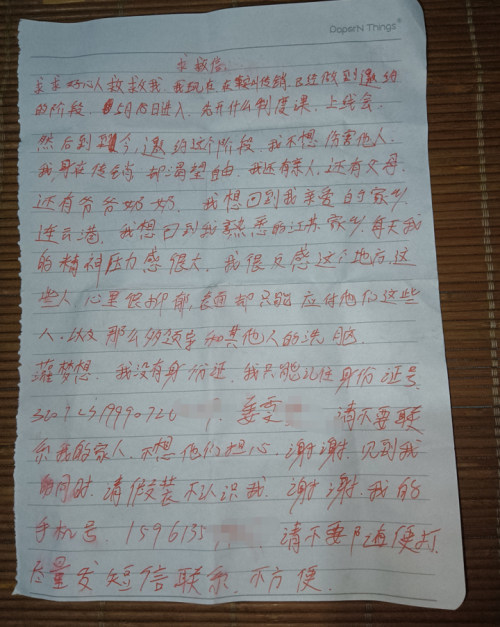 PaperN Things®
求救信
求求好心人救救我,我现在在鞍山传销,已经做到邀约
的阶段,5月15日进入,先开什么制度课,上线会,
然后到至今,邀约这个阶段,我不想伤害他人,
我身在传销点却渴望自由,我还有亲人,还有父母,
还有爷爷奶奶,我想回到我亲爱的家乡
连云港,我想回到我熟悉的江苏家乡,每天我
的精神压力感很大,我很反感这个地方,这
些人,心里很抑郁,表面却只能应付他们这些
人,以及那么多领导和其他人的洗脑,
灌梦想,我没有身份证,我只能记住身份证号,
姜雯 请不要联
系我的家人,不想他们担心,谢谢,见到我
的同时,请假装不认识我,谢谢,我的
手机号,1596135 请不要随便打,
尽量发短信联系,不方便.